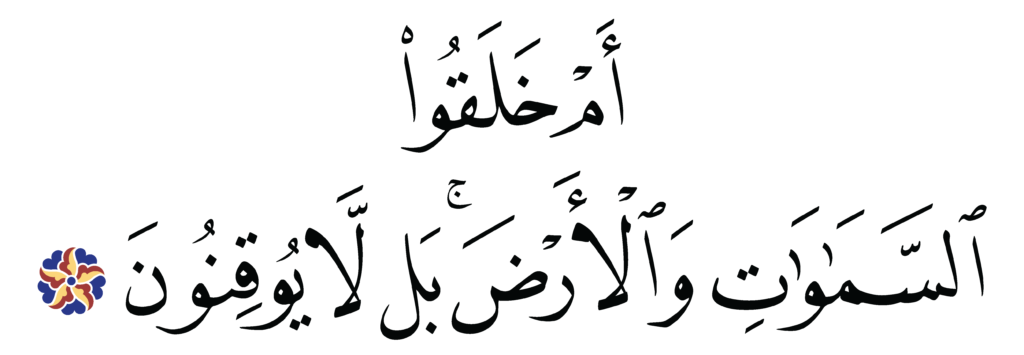 أَمۡ خَلَقُواْ
ٱلسَّمَٰوَٰتِ وَٱلۡأَرۡضَۚ بَل لَّا يُوقِنُونَ